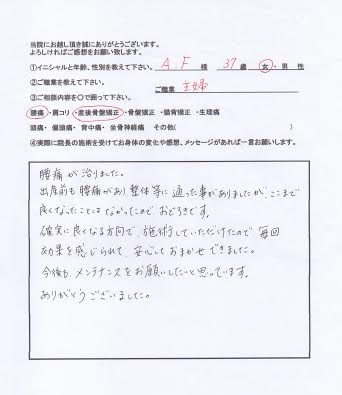 当院にお越し頂き誠にありがとうございます。
よろしければご感想をお願い致します。
①イニシャルと年齢、性別を教えて下さい。 A.F 様 37 歳 女・男 性
②ご職業を教えて下さい。 ご職業 主婦
③ご相談内容を○で囲って下さい。
腰痛・肩コリ・産後骨盤矯正・骨盤矯正・猫背矯正・生理痛
頭痛・偏頭痛・背中痛・坐骨神経痛 その他( )
④実際に院長の施術を受けてお身体の変化や感想、メッセージがあれば一言お願いします。
腰痛が治りました。
出産前も腰痛があり整体等に通った事がありましたが、ここまで
良くなったことはなかったので、おどろきです。
確実に良くなる方向で、施術していただけたので毎回
効果を感じられて、安心しておまかせできました。
今後も、メンテナンスをお願いしたいと思っています。
ありがとうございました。